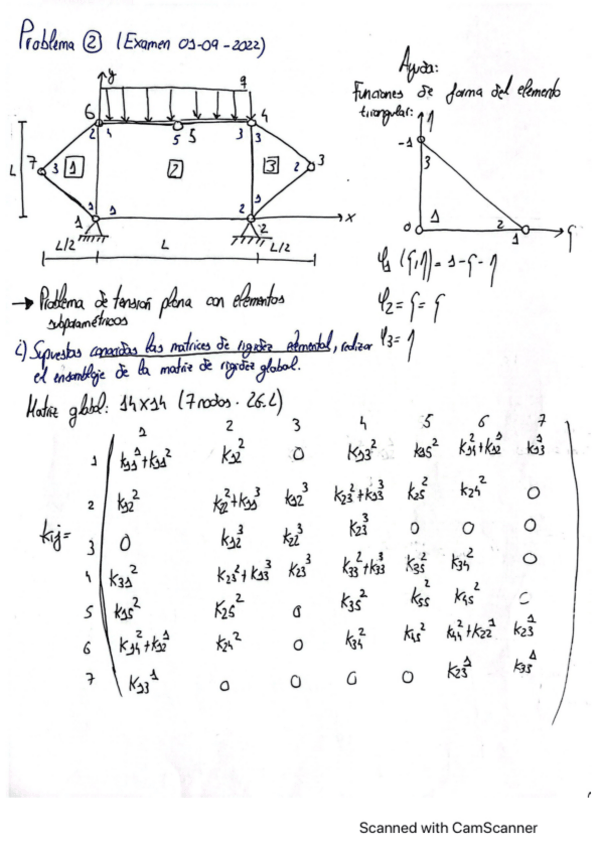 Problema ② (Examen 01-09-2022)
Ayuda:
Funciones de forma del elemento
triangular:
y
q
6 2 4 5 5 3 4 3
7 3 1 2 3 2 3
L
1 1 1 2 1 2 x
L/2 L L/2
η
-1
3
0 1 2 1 ς
φ1 (ς,η) = 1-ς-η
φ2 = ς = ς
φ3 = η
→ Problema de tensión plana con elementos
subparamétricos
i) Supuestas conocidas las matrices de rigidez elemental, realizar
el ensamblaje de la matriz de rigidez global.
Matriz global: 14x14 (7 nodos · 2G.L)
1 2 3 4 5 6 7
1 K11^1+K11^2 K12^2 0 K13^2 K15^2 K14^2+K12^1 K13^1
2 K12^2 K22^2+K11^3 K12^3 K23^2+K13^3 K25^2 K24^2 0
Kij=
3 0 K12^3 K22^3 K23^3 0 0 0
4 K31^2 K23^2+K13^3 K23^3 K33^2+K33^3 K35^2 K34^2 0
5 K15^2 K25^2 0 K35^2 K55^2 K45^2 0
6 K14^2+K12^1 K24^2 0 K34^2 K45^2 K44^2+K22^1 K23^1
7 K13^1 0 0 0 0 K23^1 K33^1
Scanned with CamScanner